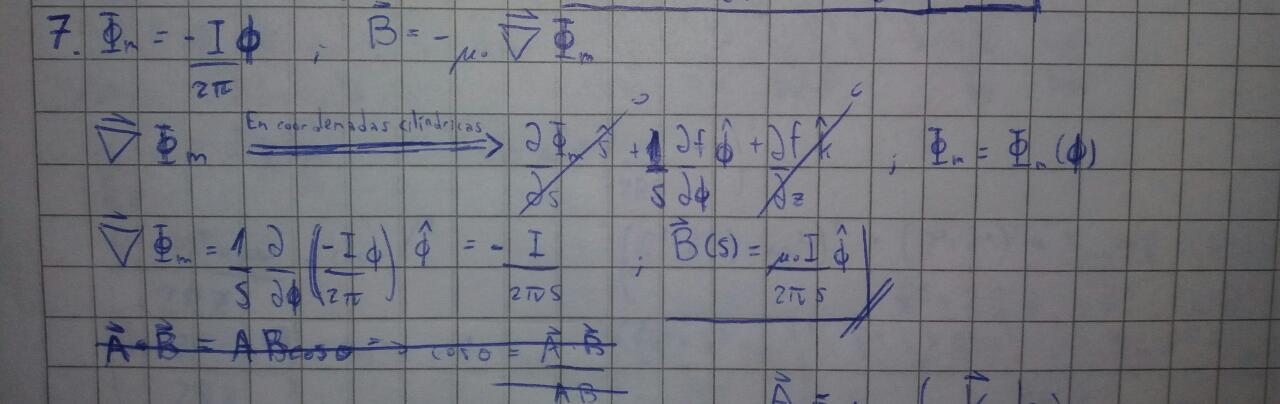 7. Φₘ = -I/2π ϕ ; B⃗ = -μ₀ ∇⃗ Φₘ
∇⃗ Φₘ En coordenadas cilíndricas ⟹ ∂Φₘ/∂s ŝ 0 + 1/s ∂f/∂ϕ ϕ̂ + ∂f/∂z k̂ 0 ; Φₘ = Φₘ(ϕ)
∇⃗ Φₘ = 1/s ∂/∂ϕ (-I/2π ϕ) ϕ̂ = - I/2πs ; B⃗(s) = μ₀I/2πs ϕ̂
A⃗·B⃗ = AB cosθ => cosθ = A⃗·B⃗/AB